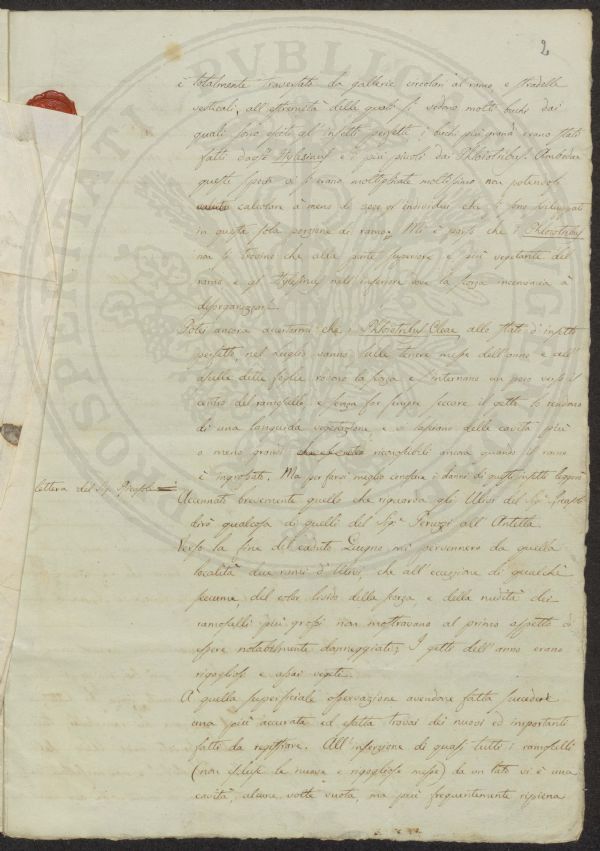 2
è totalmente traversato da gallerie circolari al ramo e stradelle
verticali, all'estremità delle quali si vedono molti buchi dai
quali sono esciti gl'Insetti perfetti i buchi più grandi erano stati
fatti dagli Hylesinus e i più piccoli dai Phloiotribus. Ambedue
queste specie vi si erano moltiplicate moltissimo non potendosi
calcolare a meno di 200 gl'individui che si sono sviluppati
in questa sola porzione di ramo. Mi è parso che i Phloiotribus
non si trovino che alla parte superiore e più vegetante del
ramo e gl'Hylesinus nell'inferiore ove la scorza incomincia a
disorganizzarsi.
Potei ancora accertarmi che i Phloiotribus Oleae allo stato d'insetti
perfetti, nel Luglio vanno sulle tenere messe dell'anno e all'
ascella delle foglie rodono la scorza e s'internano un poco verso il
centro del ramoscello e senza far sempre seccare il getto lo rendono
di una languida vegetazione e vi lasciano delle cavità più
o meno grandi riconoscibili ancora quando il ramo
è ingrossato. Ma per farsi meglio conoscere i danni di questi insetti leggerò
lettera del Sig.
Accennato brevemente quello che riguarda gli Ulivi del Sig.
dirò qualcosa di quelli del Sig. Peruzzi all'Antella.
Verso la fine del caduto Giugno mi pervennero da quella
località due rami d'Ulivi, che all'eccezione di qualche
seccume, del color livido della scorza, e della nudità dei
ramoscelli più grossi non mostravano al primo aspetto di
essere notabilmente danneggiati; I getti dell'anno erano
rigogliosi e assai vegeti.
A quella superficiale osservazione avendone fatta succedere
una più accurata ed esatta trovai dei nuovi ed importanti
fatti da registrare. All'inserzione di quasi tutti i ramoscelli
(non escluse le nuove e rigogliose messe) da un lato vi è una
cavità, alcune volte vuota, ma più frequentemente ripiena